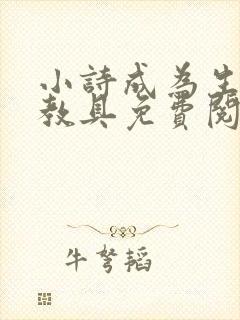 小詩成為生
教具免費閱
牛弩韜